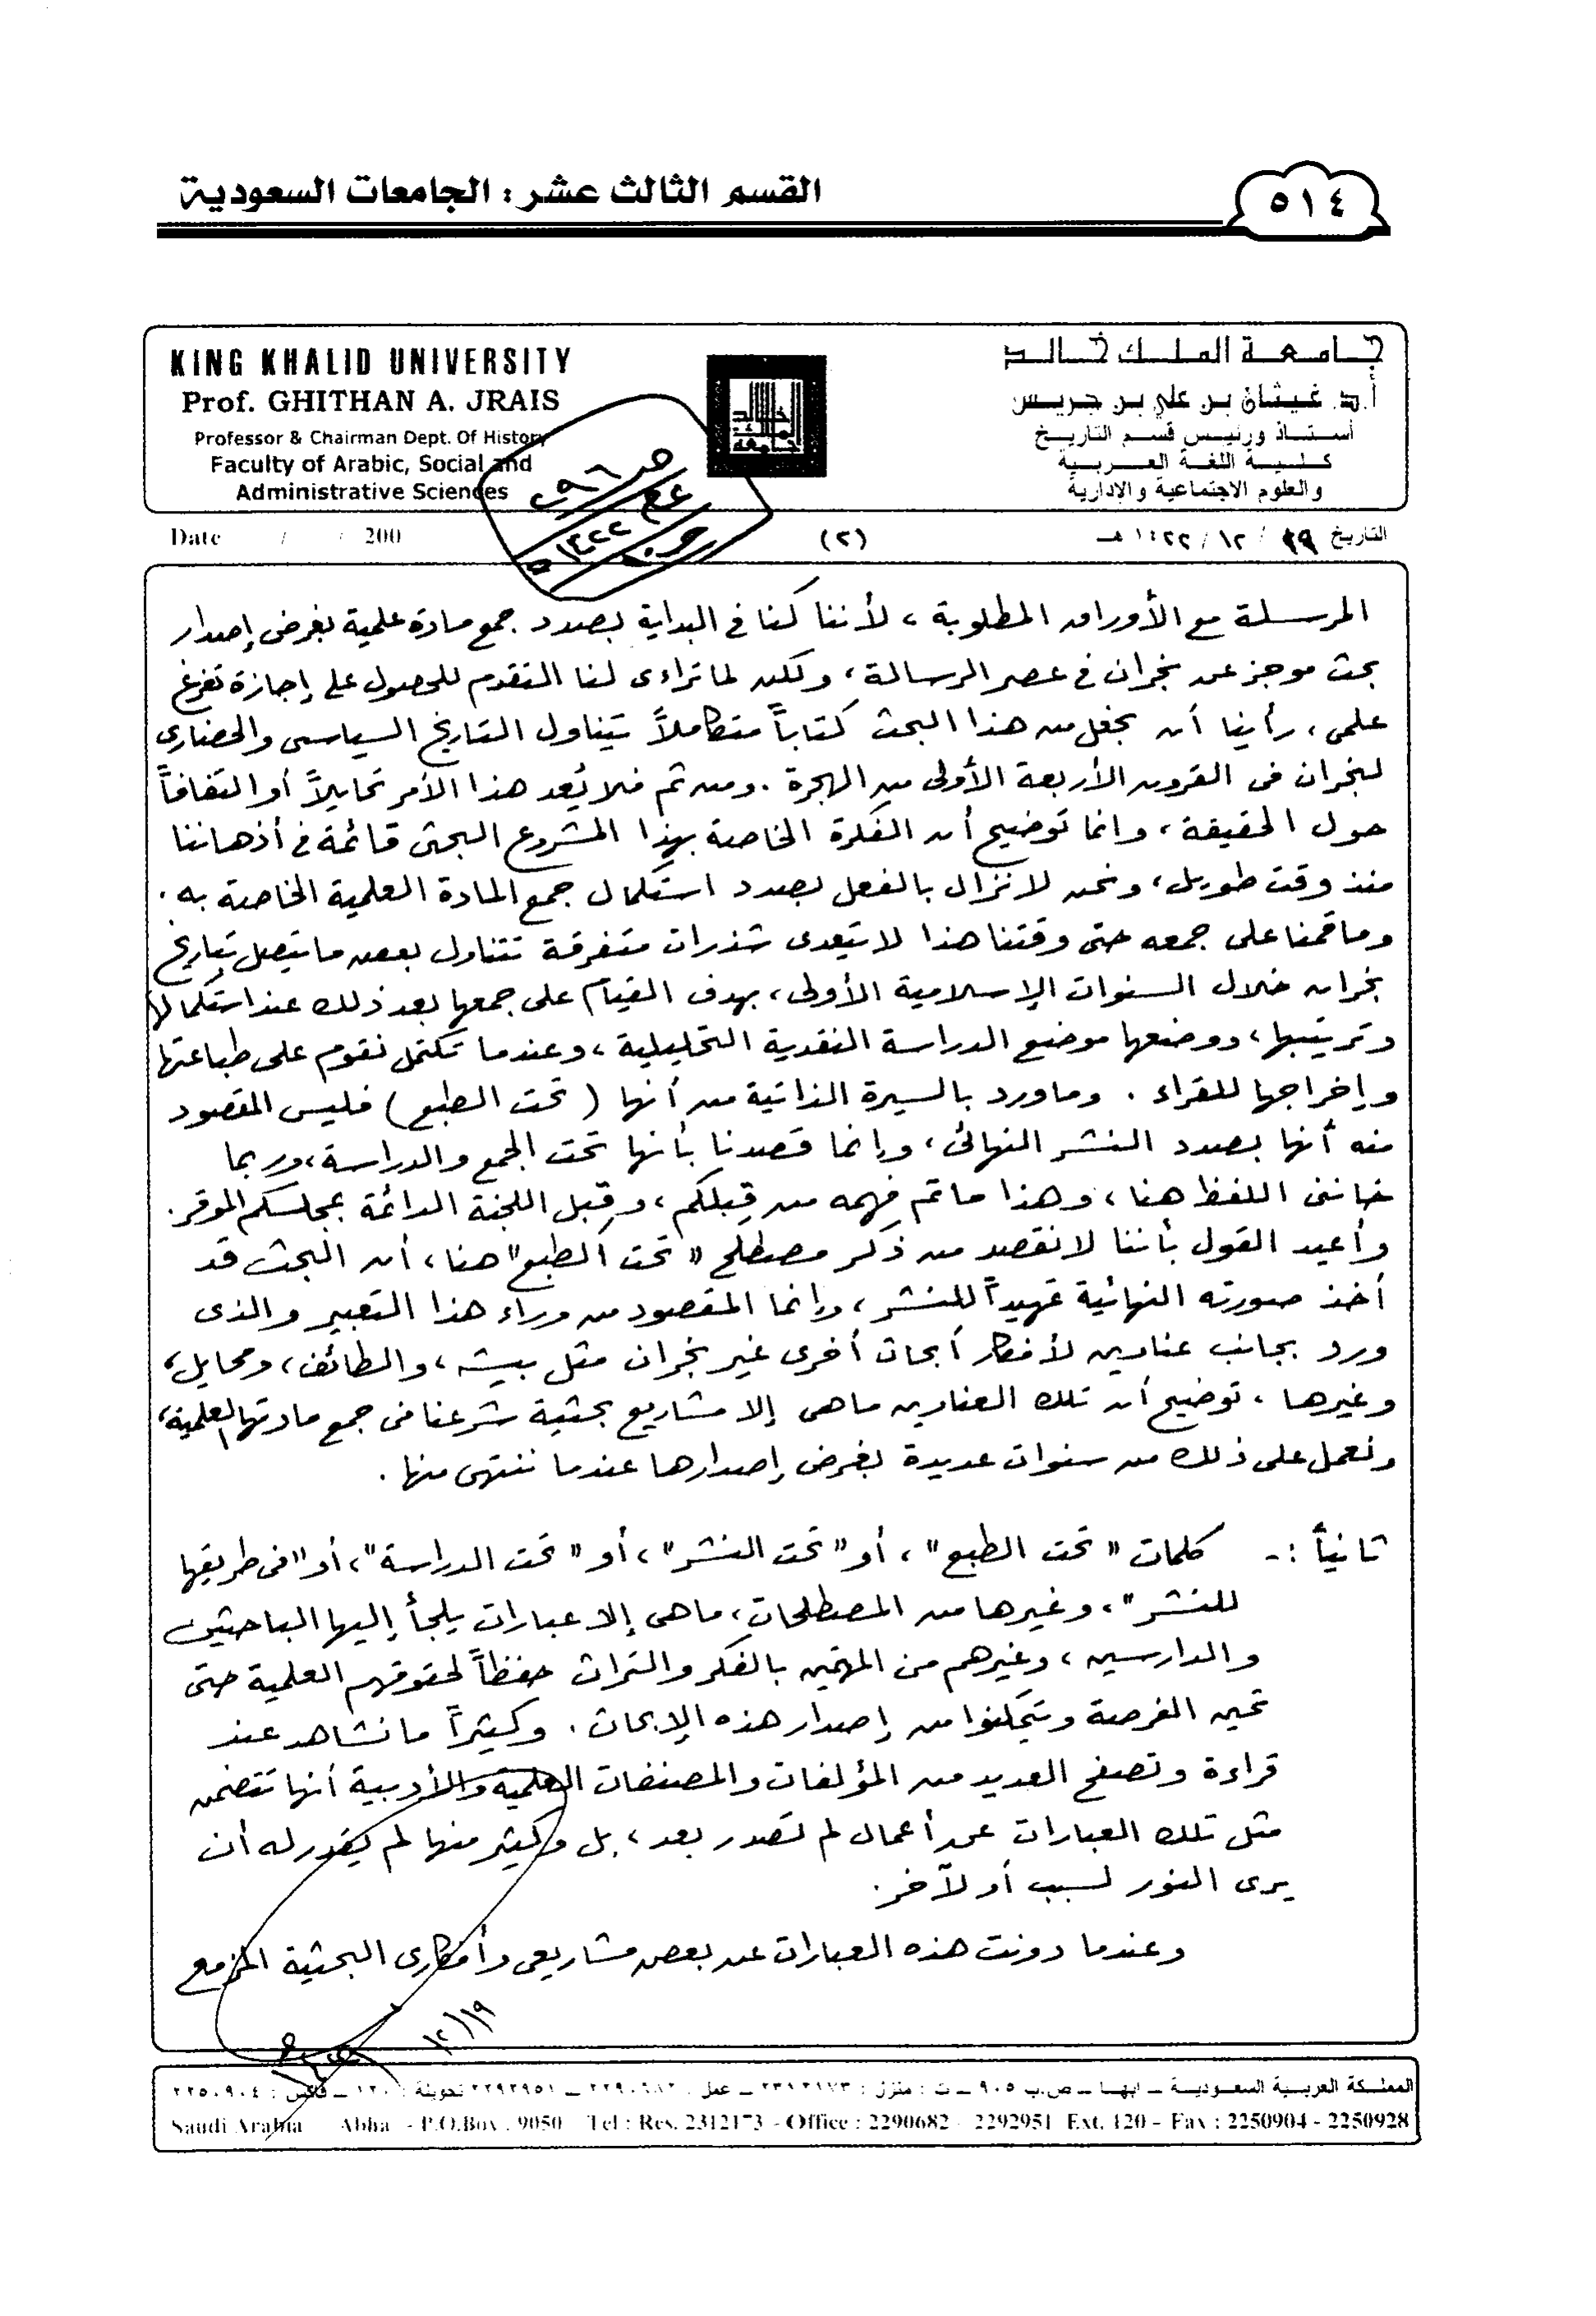 القسم الثالث عشر : الجامعات السعودية
٥١٤
KING KHALID UNIVERSITY
Prof. GHITHAN A. JRAIS
Professor & Chairman Dept. Of History
Faculty of Arabic, Social and
Administrative Sciences
جامعة الملك خالد
أ.د. غيثان بن علي بن جريس
أستاذ ورئيس قسم التاريخ
كلية اللغة العربية
والعلوم الاجتماعية والإدارية
Date / / 200
(٢)
التاريخ ١٩ / ١٢ / ١٤٢٢ هـ
المرسلة مع الأوراق المطلوبة ، لأننا كنا في البداية بصدد جمع مادة علمية بغرض إصدار
بحث موجز عن نجران في عصر الرسالة ، ولكن لما تراءى لنا التقدم للحصول على إجازة تفرغ
علمي ، رأينا أن نجعل من هذا البحث كتاباً متكاملاً يتناول التاريخ السياسي والحضاري
لنجران في القرون الأربعة الأولى من الهجرة . ومن ثم فلا يُعد هذا الأمر تحايلاً أو التفافاً
حول الحقيقة ، وانما توضيح أن الفكرة الخاصة بهذا المشروع البحثي قائمة في أذهاننا
منذ وقت طويل ، ونحن لا نزال بالفعل بصدد استكمال جمع المادة العلمية الخاصة به .
وما قمنا على جمعه حتى وقتنا هذا لا يتعدى شذرات متفرقة تتناول بعض ما يتصل بتاريخ
نجران خلال السنوات الإسلامية الأولى ، بهدف القيام على جمعها بعد ذلك عند استكمالها
وترتيبها ، ووضعها موضع الدراسة النقدية التحليلية ، وعندما تكتمل نقوم على طباعتها
وإخراجها للقراء . وما ورد بالسيرة الذاتية من أنها ( تحت الطبع ) فليس المقصود
منه أنها بصدد النشر النهائي ، وإنما قصدنا بأنها تحت الجمع والدراسة ، وربما
خانني اللفظ هنا ، وهذا ما تم فهمه من قِبلكم ، وقِبل اللجنة الدائمة بمجلسكم الموقر .
وأعيد القول بأننا لا نقصد من ذكر مصطلح " تحت الطبع " هنا ، أن البحث قد
أخذ صورته النهائية تمهيداً للنشر ، وإنما المقصود من وراء هذا التعبير والذي
ورد بجانب عناوين لأفكار أبحاث أخرى غير نجران مثل بيشه ، والطائف ، ومحايل ،
وغيرها ، توضيح أن تلك العناوين ماهي إلا مشاريع بحثية شرعنا في جمع مادتها العلمية ،
ونعمل على ذلك من سنوات عديدة بغرض إصدارها عندما ننتهي منها .
ثانياً :- كلمات " تحت الطبع " ، أو " تحت النشر " ، أو " تحت الدراسة " ، أو " في طريقها
للنشر " ، وغيرها من المصطلحات ، ماهي إلا عبارات يلجأ إليها الباحثين
والدارسين ، وغيرهم من المهتمين بالفكر والتراث حفظاً لحقوقهم العلمية حتى
تحين الفرصة ويتمكنوا من إصدار هذه الابحاث . وكثيراً ما نشاهد عند
قراءة وتصفح العديد من المؤلفات والمصنفات العلمية والأدبية أنها تتضمن
مثل تلك العبارات عن أعمال لم تصدر بعد ، بل وكثير منها لم يقدر له أن
يرى النور لسبب أو لآخر .
وعندما دونت هذه العبارات عن بعض مشاريعي وأفكاري البحثية المزمع
١٢/١٩
المملكة العربية السعودية ــ ابها ــ ص.ب ٩٠٥ ــ ت : منزل : ٢٣١٢١٧٣ ــ عمل : ٢٢٩٠٦٨٢ ــ ٢٢٩٢٩٥١ تحويلة : ١٢٠ ــ فاكس : ٢٢٥٠٩٠٤
Saudi Arabia Abha - P.O.Box . 9050 Tel : Res. 2312173 - Office : 2290682 - 2292951 Ext. 120 - Fax : 2250904 - 2250928